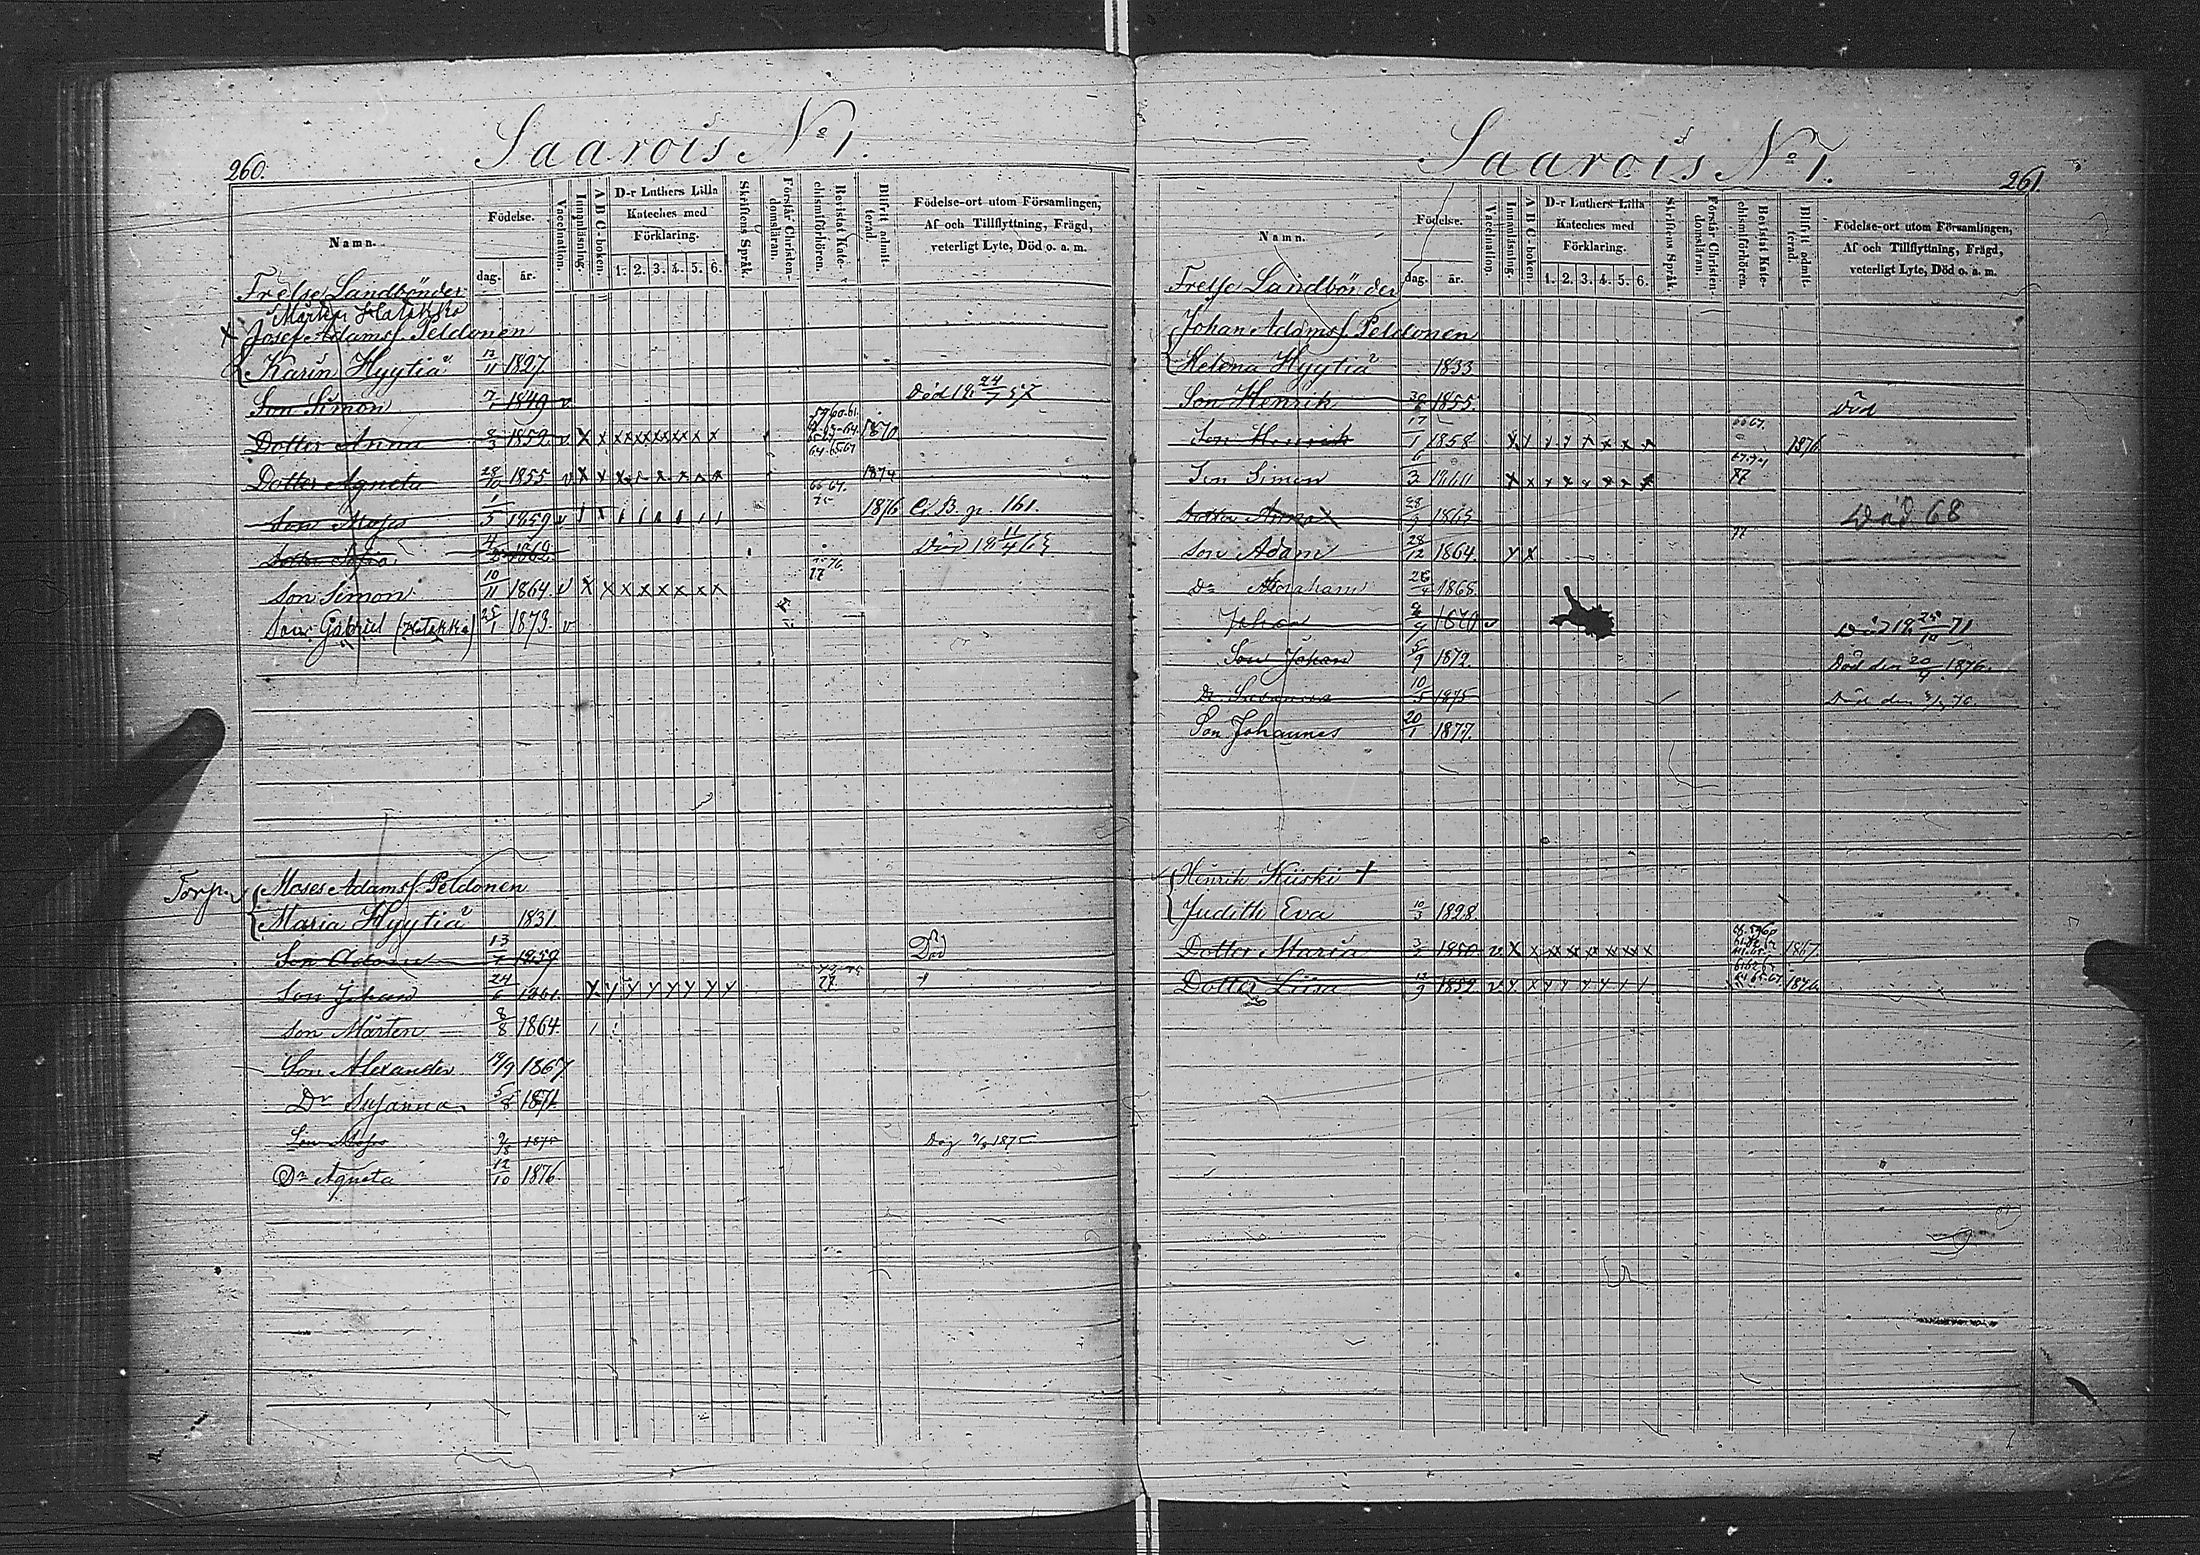 260.
Saarois No 1.
Namn.
Födelse.
dag. år.
Vaccination.
Innanläsning.
A B C-boken.
D-r Luthers Lilla
Kateches med
Förklaring.
1. 2. 3. 4. 5. 6.
Skriftens Språk.
Förstår Christendomsläran.
Bevistat Katechismiförhören.
Blifvit admitterad.
Födelse-ort utom Församlingen,
Af och Tillflyttning, Frägd,
veterligt Lyte, Död o. a. m.
Frelse Landbönder
Mårten Hatakka
X Josef Adamsf. Peldonen
Karin Hyytiä 12/11 1827
Son Simon 7/1 1849 v Död 19 24/7 57
Dotter Anna 2/3 1852 v X x x x x x x x x x 1870
Dotter Agneta 28/10 1855 v X x x x x x 66 67. 1874
Son Moses 1/5 1859 v 1876 C. B. p. 161.
Dotter Sofia 4/2 1862 Död 19 11/4 63
Son Simon 10/11 1864 v X x x x x x x x 77
Son Gabriel (Hatakka) 25/1 1873. v
Torp. Moses Adamsf. Peldonen
Maria Hyytiä 1831
Son Adam 13/7 1859 Död
Son Johan 24/6 1861 77
Son Mårten 8/8 1864
Son Alexander 19/9 1867
Dr Susanna 5/8 1871
Son Moses 1875 Dog 1875
Dr Agneta 12/10 1876
Saarois No 1.
261
Namn.
Födelse.
dag. år.
Vaccination.
Innanläsning.
A B C-boken.
D-r Luthers Lilla
Kateches med
Förklaring.
1. 2. 3. 4. 5. 6.
Skriftens Språk.
Förstår Christendomsläran.
Bevistat Katechismiförhören.
Blifvit admitterad.
Födelse-ort utom Församlingen,
Af och Tillflyttning, Frägd,
veterligt Lyte, Död o. a. m.
Frelse Landbönder
Johan Adamsf. Peldonen
Helena Hyytiä 1833
Son Henrik 1855. Död
Son Henrik 17/1 1858 66 67. 1876
Son Simon 6/3 1860 77
Dotter Anna 1863 Död 68
Son Adam 28/12 1864 x x 77
Dr Abraham 1865
Johan 1870 v Död 19 25/10 71
Son Johan 5/9 1872. Död den 20/4 1876.
Dr Susanna 10/5 1875 Död den 76.
Son Johannes 20/1 1877.
Henrik Kiiski +
Judith Eva 10/3 1828
Dotter Maria 1850 v. X x x x x x x x x 1867
Dotter Liisa 12/9 1859 1876